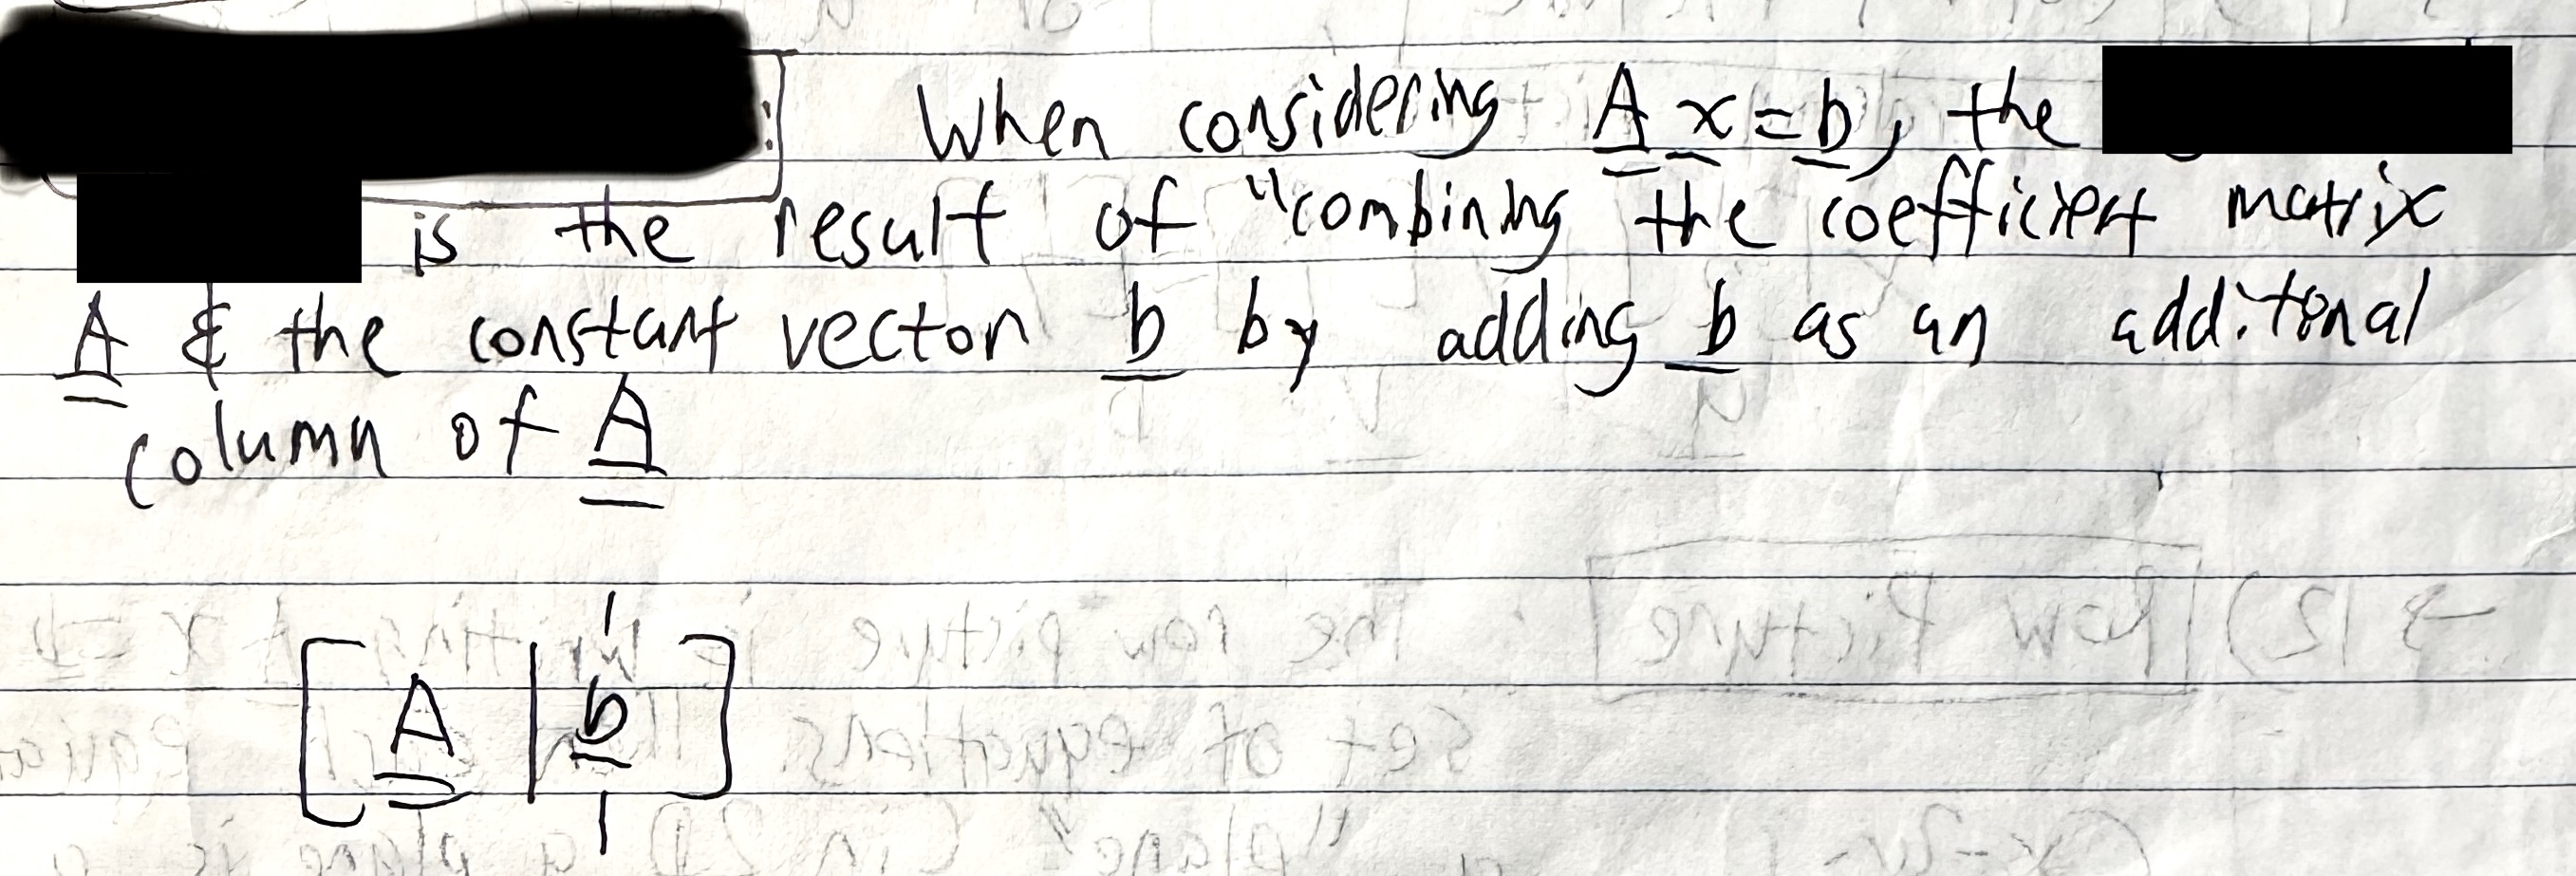 : When considering A x = b, the
is the result of "combining the coefficient matrix
A & the constant vector b by adding b as an additonal
column of A
[ A | b ]